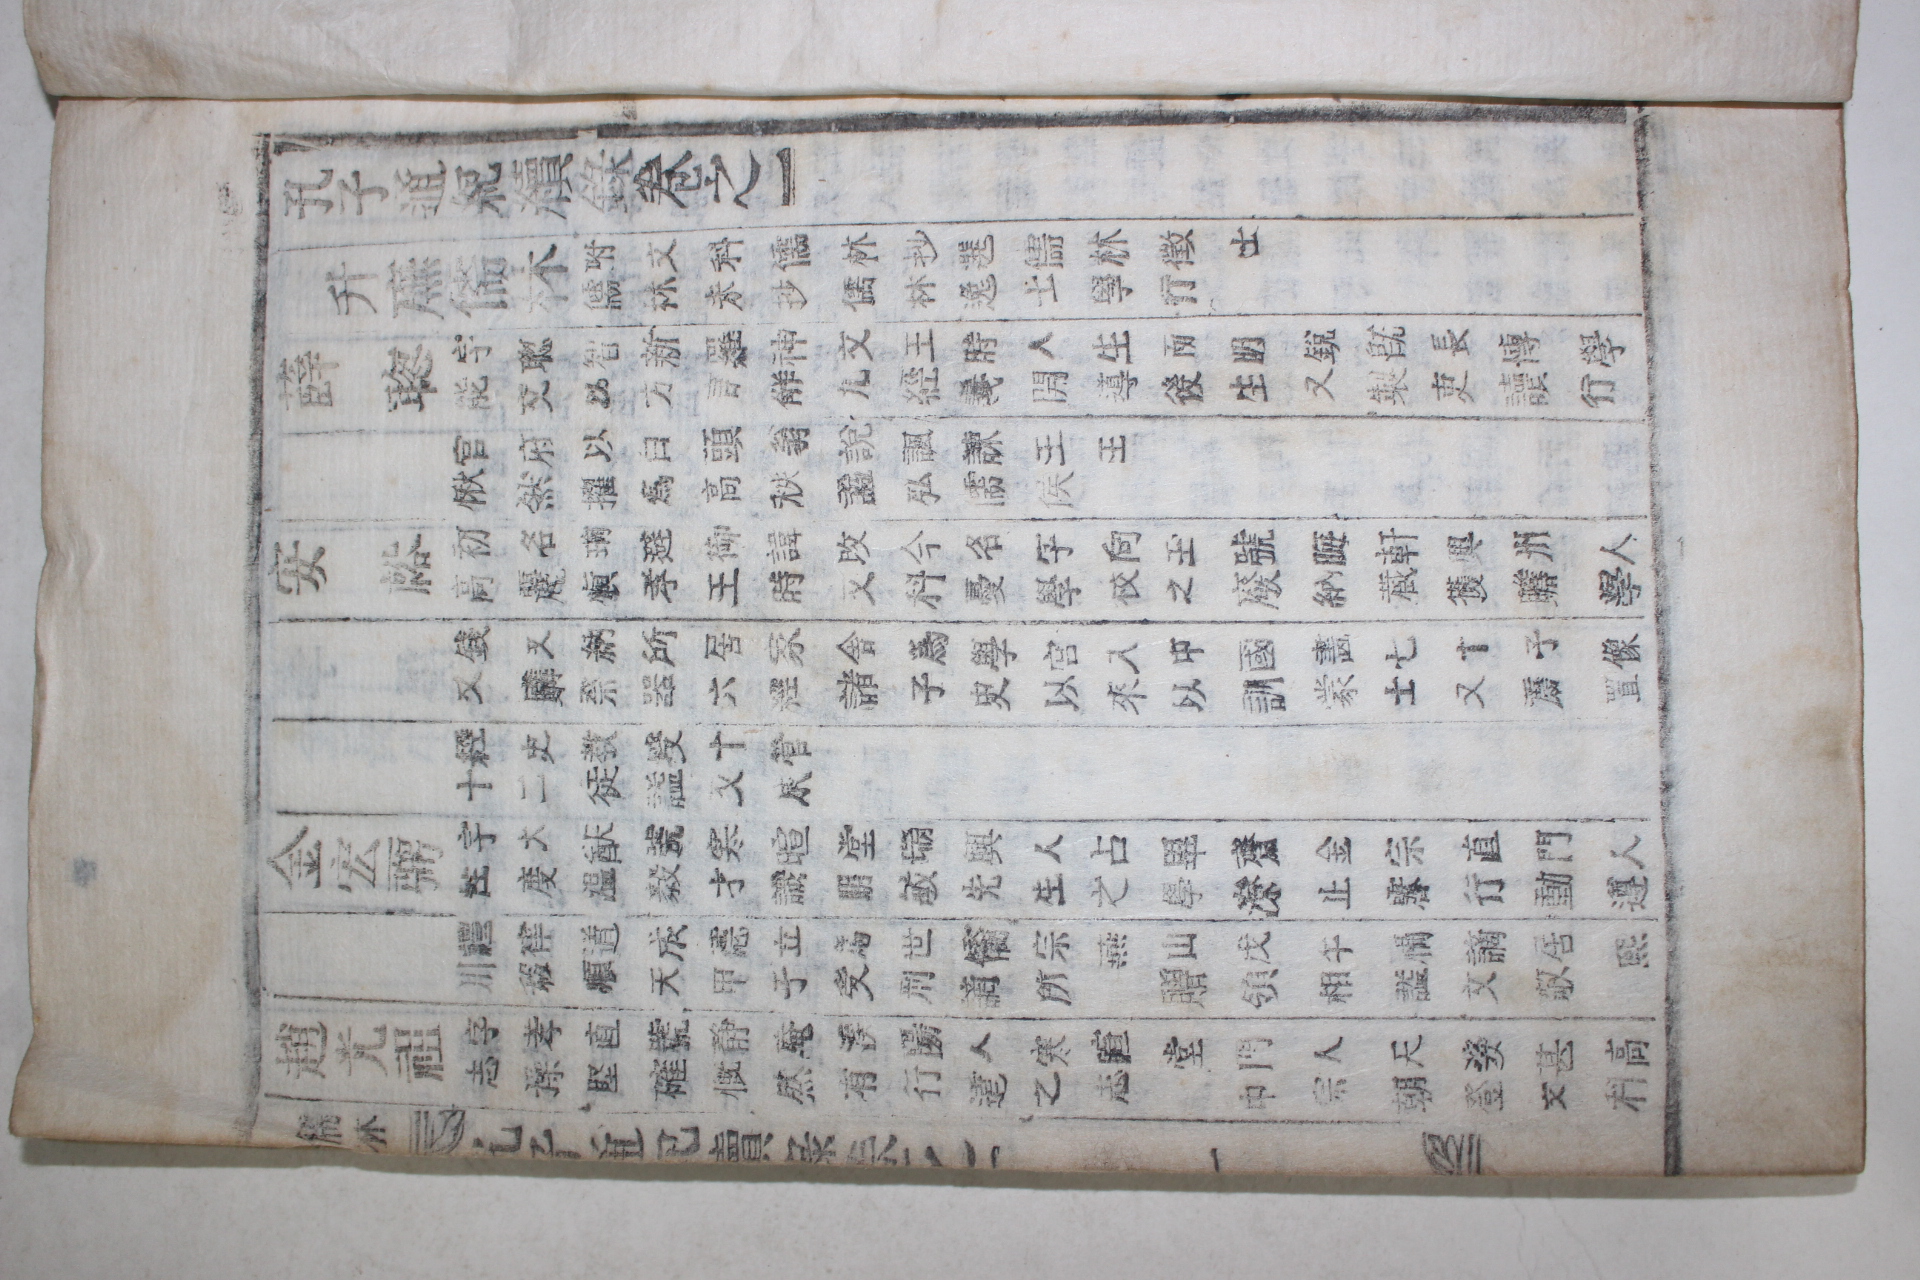 孔子通紀續錄卷之一
升廡儒林
附文科儒林抄選儒林徵士
儒林未抄儒林逸士學行
薛聰
字聰智新羅神文王時人生而明銳既長博學
能文以方言解九經義開導後生又製吏讀行
官府以白頭翁說諷諫王王
愀然擢爲高秩諡弘儒侯
安裕
初名珦避御諱改今名字向玉號晦軒興州人
高麗忠孝王時文科憂學校之廢納臧獲贍學
錢又納所居家舍爲學宮入中國畫七十子像
又購祭器六經諸子史以來以訓蒙士又薦置
經史教授十管
十二徒諡文成
金宏弼
字大猷號寒暄堂瑞興人占畢齋金宗直門人
性度溫毅才識明敏先生之學深止齋行動遵
禮律道成德立爲世儒宗燕山戊午禍謫居熙
川殺順天甲子受刑謫所 贈領相諡文敬
趙光祖
字孝直號靜庵漢陽人寒暄堂門人天姿甚高
志操堅確慨然有行道之志 中宗朝登文科
儒林 孔子通紀續錄卷之一 一